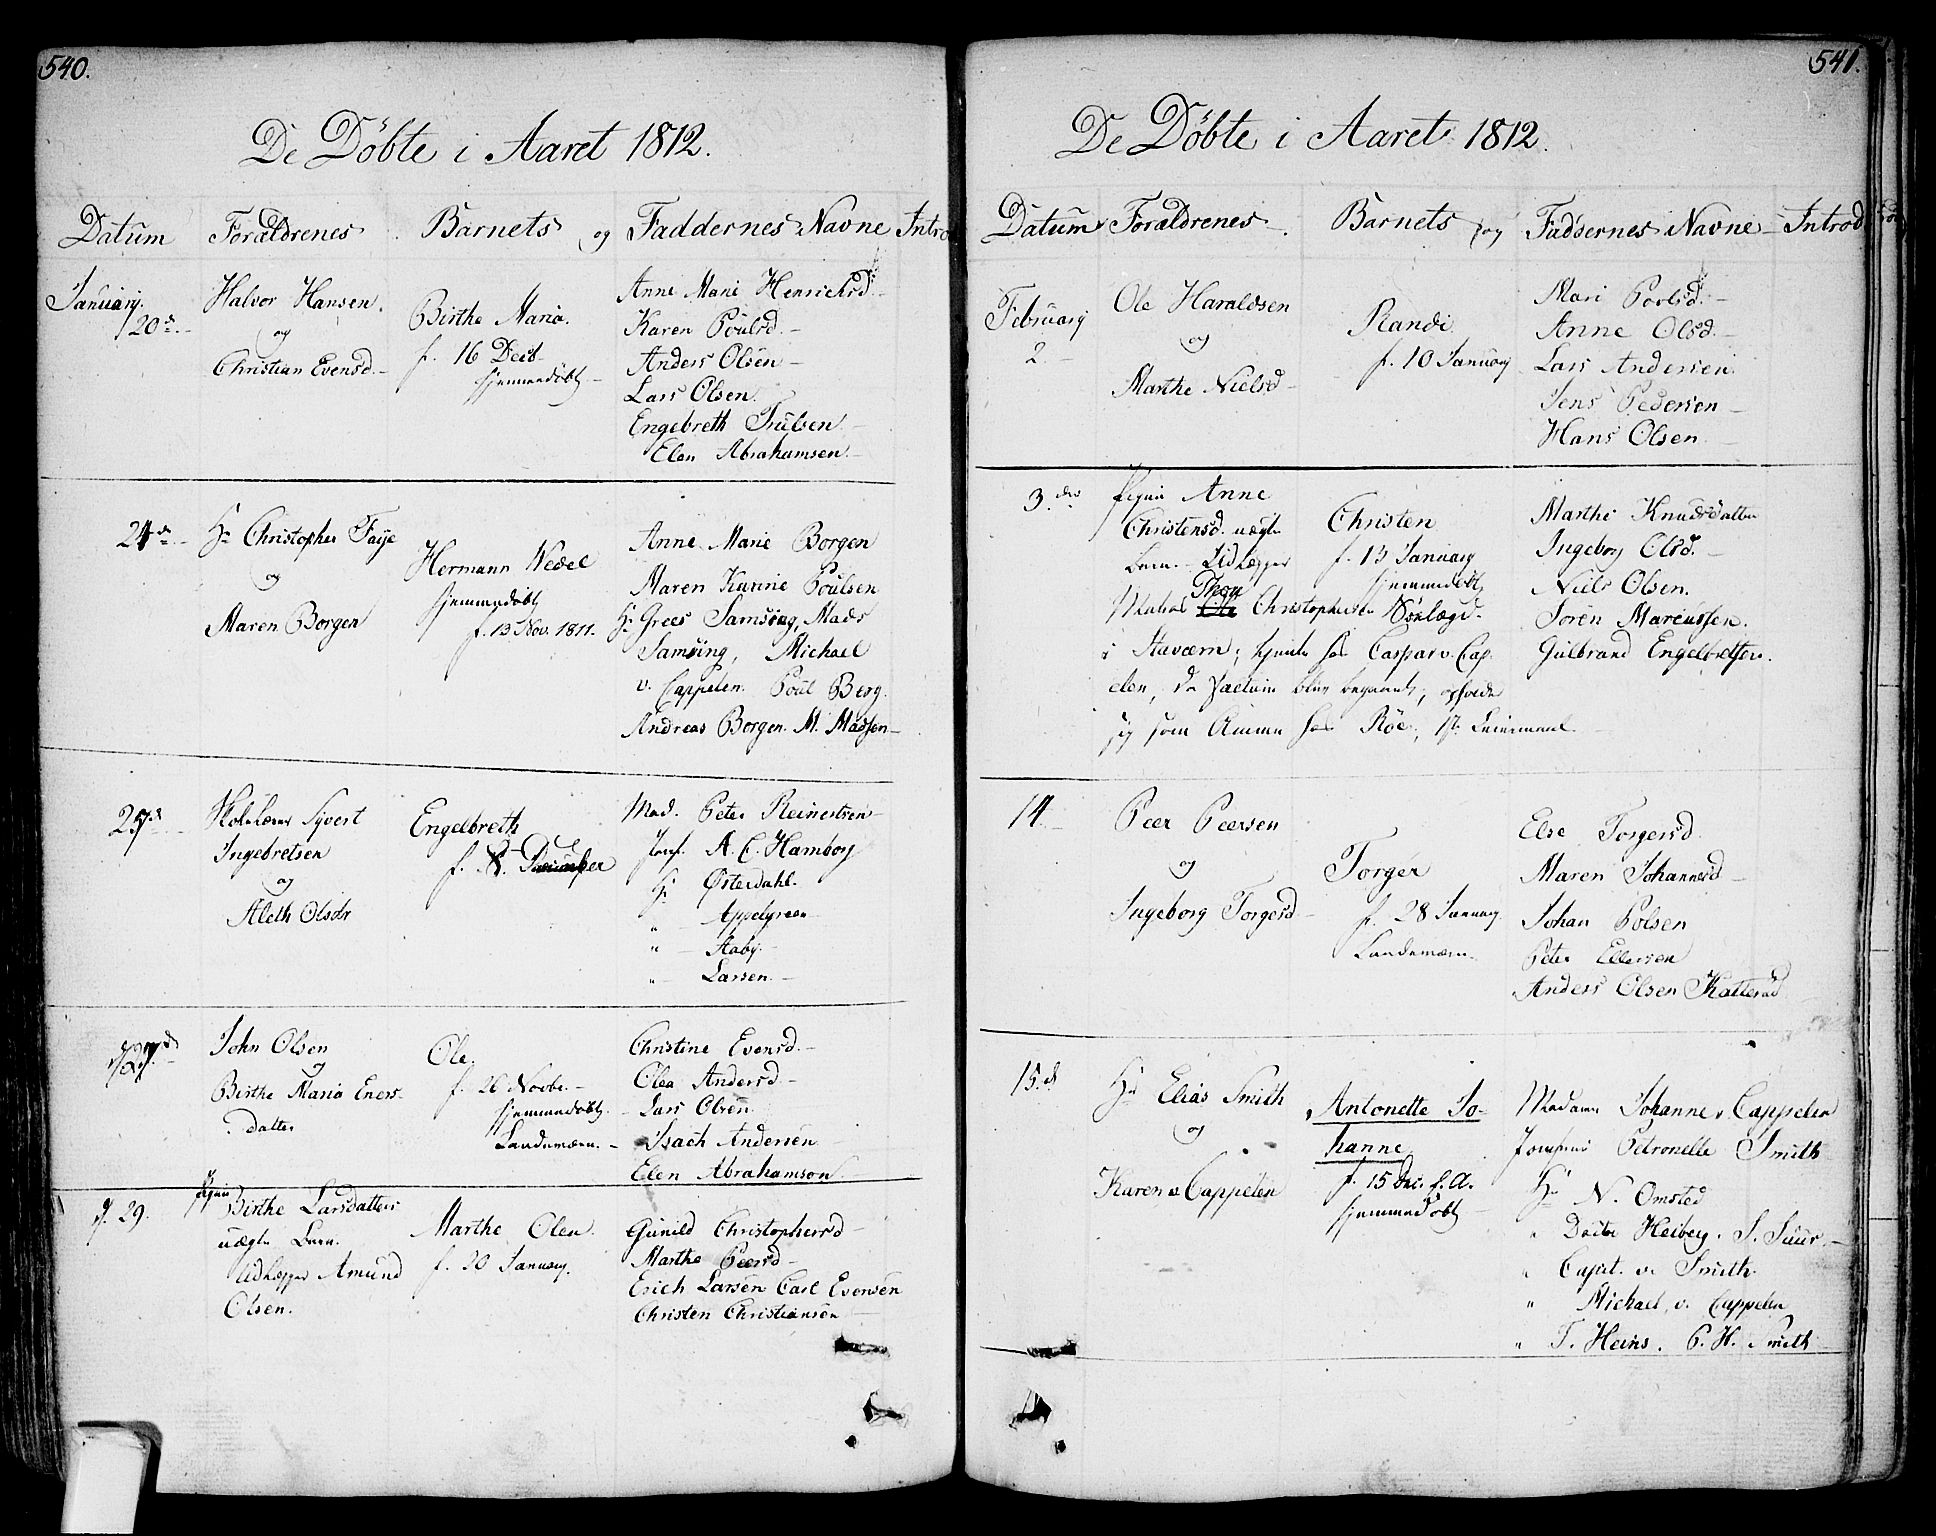 540.
De Döbte i Aaret 1812.
Datum Forældrenes Barnets og Faddernes Navne Intro
Januarij 20de
Halvor Hansen
og
Christian Evensd.
Birthe Maria.
f. 16 Decb
hjemmedöbt
Anne Marie Henrichsd.
Karen Poulsd.
Anders Olsen
Lars Olsen.
Engebreth Trulsen
Elen Abrahamsen.
24de
Hr Christopher Faye
og
Maren Borgen
Hermann Wedel
hjemmedöbt
f. 13 Nov. 1811.
Anne Marie Borgen
Maren Karine Poulsen
Hr Grees Samsöing, Mads
Samsöing, Michael
v. Cappelen. Poul Berg.
Andreas Borgen. M. Madsen
Skolelærer Syvert
Ingebretsen
og
Aleth Olsdr
Engelbreth
Mad. Peter Reinertsen
Jomf. A. C. Hamborg
Hr Østerdahl.
" Appelgreen
" Aaby
" Larsen.
27d
John Olsen
og
Birthe Maria Eners-
datter
Ole.
f. 26 Novbr.
hjemmedöbt
Landemærn.
Christine Evensd.
Olea Andersd
Lars Olsen
Isach Andersen
Elen Abrahamson
29.
Pigen
Birthe Larsdatters
uægte Barn.
Udlægger Amund
Olsen.
Marthe Olea.
f. 20 January.
Gunild Christophersd
Marthe Peersd
Erich Larsen Carl Evensen
Christen Christiansen
541.
De Döbte i Aaret 1812.
Datum Forældrenes Barnets og Faddernes Navne Introd
February
2.
Ole Haraldsen
og
Marthe Nielsd
Randi
f. 10 January
Mari Poelsd.
Anne Olsd.
Lars Andersen
Jens Pedersen
Hans Olsen
3.die
Pigen Anne
Christensd. uægte
Barn. Udlægger
Thor
Christophersen
i Staværn; tjente hos Caspar v. Cap-
elen, da Factum blev begaaet; opholder
sig som Amme hos Röe,
Christen
f. 13 January
hjemmedöbt
Marthe Knudsdatter
Ingeborg Olsd.
Niels Olsen.
Sören Marcussen.
Gulbrand Engelbretsen.
14.
Peer Peersen
og
Ingeborg Torgersd
Torger
f. 28 January
Landemærn.
Else Torgersd.
Maren Johannesd
Johan Polsen
Peter Ellersen
Anders Olsen Katterød
15.d
Hr Elias Smith
og
Karen v Cappelen
Antonette Jo-
hanne
f. 15 Dec. f. A.
hjemmedöbt
Madame Johanne v Cappelen
Jomfrue Petronelle Smith
Hr N. Omsted
" Doctor Heiberg. S. Suur.
" Capit. v. Smith.
" Michael v. Cappelen
" T. Heins. P. H. Smith